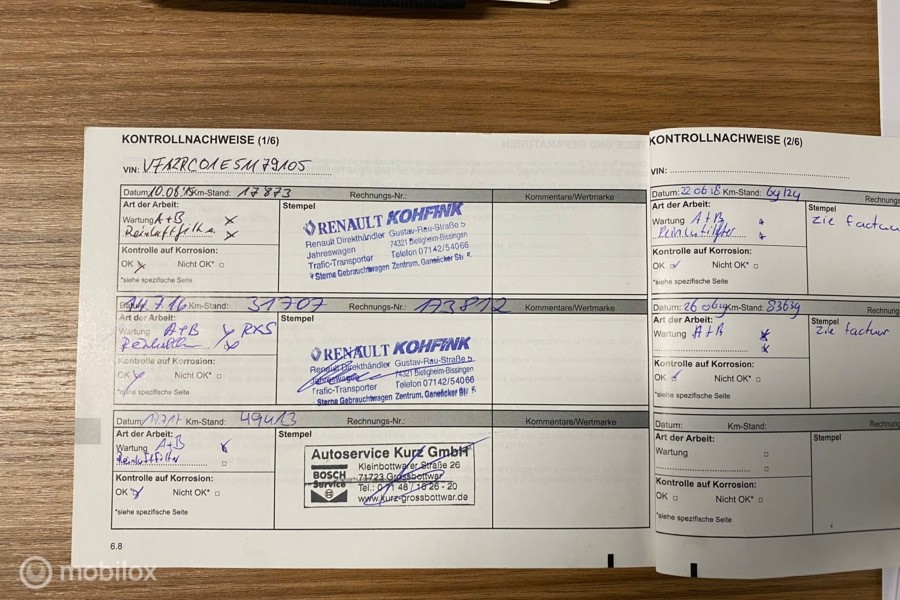 KONTROLLNACHWEISE (1/6)
VIN: VF12RC01E51179105
Datum: 10.08.15 Km-Stand: 17873 Rechnungs-Nr.: Kommentare/Wertmarke
Art der Arbeit: Stempel
Wartung A+B x
Reinluftfilter x
RENAULT KOHFINK
Renault Direkthändler Gustav-Rau-Straße 5
Jahreswagen 74321 Bietigheim-Bissingen
Trafic-Transporter Telefon 07142/54066
Sterne Gebrauchtwagen Zentrum,
Kontrolle auf Korrosion:
OK x Nicht OK*
*siehe spezifische Seite
Datum 14.7.16 Km-Stand: 31707 Rechnungs-Nr.: 173812 Kommentare/Wertmarke
Art der Arbeit: Stempel
Wartung A+B x RKS
x
RENAULT KOHFINK
Renault Direkthändler Gustav-Rau-Straße 5
Jahreswagen 74321 Bietigheim-Bissingen
Trafic-Transporter Telefon 07142/54066
Sterne Gebrauchtwagen Zentrum,
Kontrolle auf Korrosion:
OK x Nicht OK*
*siehe spezifische Seite
Datum: Km-Stand: 49413 Rechnungs-Nr.: Kommentare/Wertmarke
Art der Arbeit: Stempel
Wartung A+B x
Reinluftfilter
Autoservice Kurz GmbH
BOSCH Service
Kleinbottwarer Straße 26
71723 Grossbottwar
Tel.: 0 71 48 / 16 26 - 20
www.kurz-grossbottwar.de
Kontrolle auf Korrosion:
OK x Nicht OK*
*siehe spezifische Seite
6.8
KONTROLLNACHWEISE (2/6)
VIN:
Datum: 22 06 18 Km-Stand: 69124 Rechnungs
Art der Arbeit: Stempel
Wartung A+B
zie factuur
Kontrolle auf Korrosion:
OK Nicht OK*
*siehe spezifische Seite
Datum: 26 06 19 Km-Stand: 83639 Rechnung
Art der Arbeit: Stempel
Wartung A+B x
x
zie factuur
Kontrolle auf Korrosion:
OK Nicht OK*
*siehe spezifische Seite
Datum: Km-Stand: Rechnung
Art der Arbeit: Stempel
Wartung
Kontrolle auf Korrosion:
OK Nicht OK*
*siehe spezifische Seite
mobilox